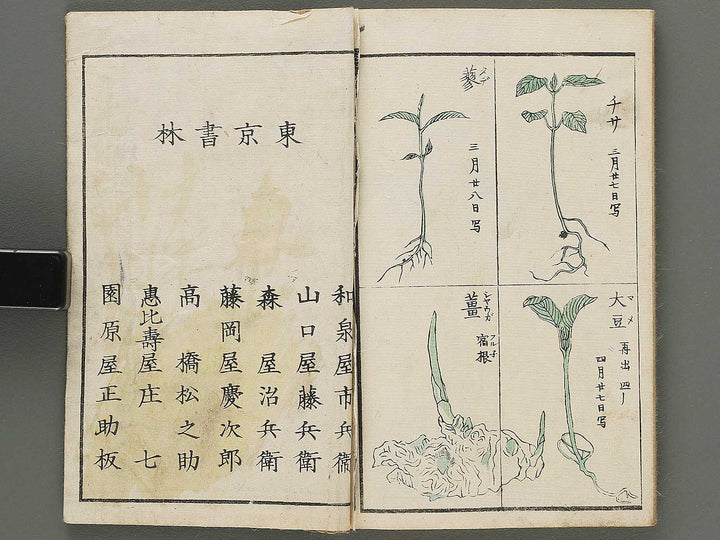 チサ
三月廿七日写
蓼
三月廿八日写
大豆
マメ
再出
四月廿七日写
薑
シヤウガ
宿根
フルネ
東京書林
和泉屋市兵衛
山口屋藤兵衛
森屋沼兵衛
藤岡屋慶次郎
高橋松之助
惠比壽屋庄七
園原屋正助板